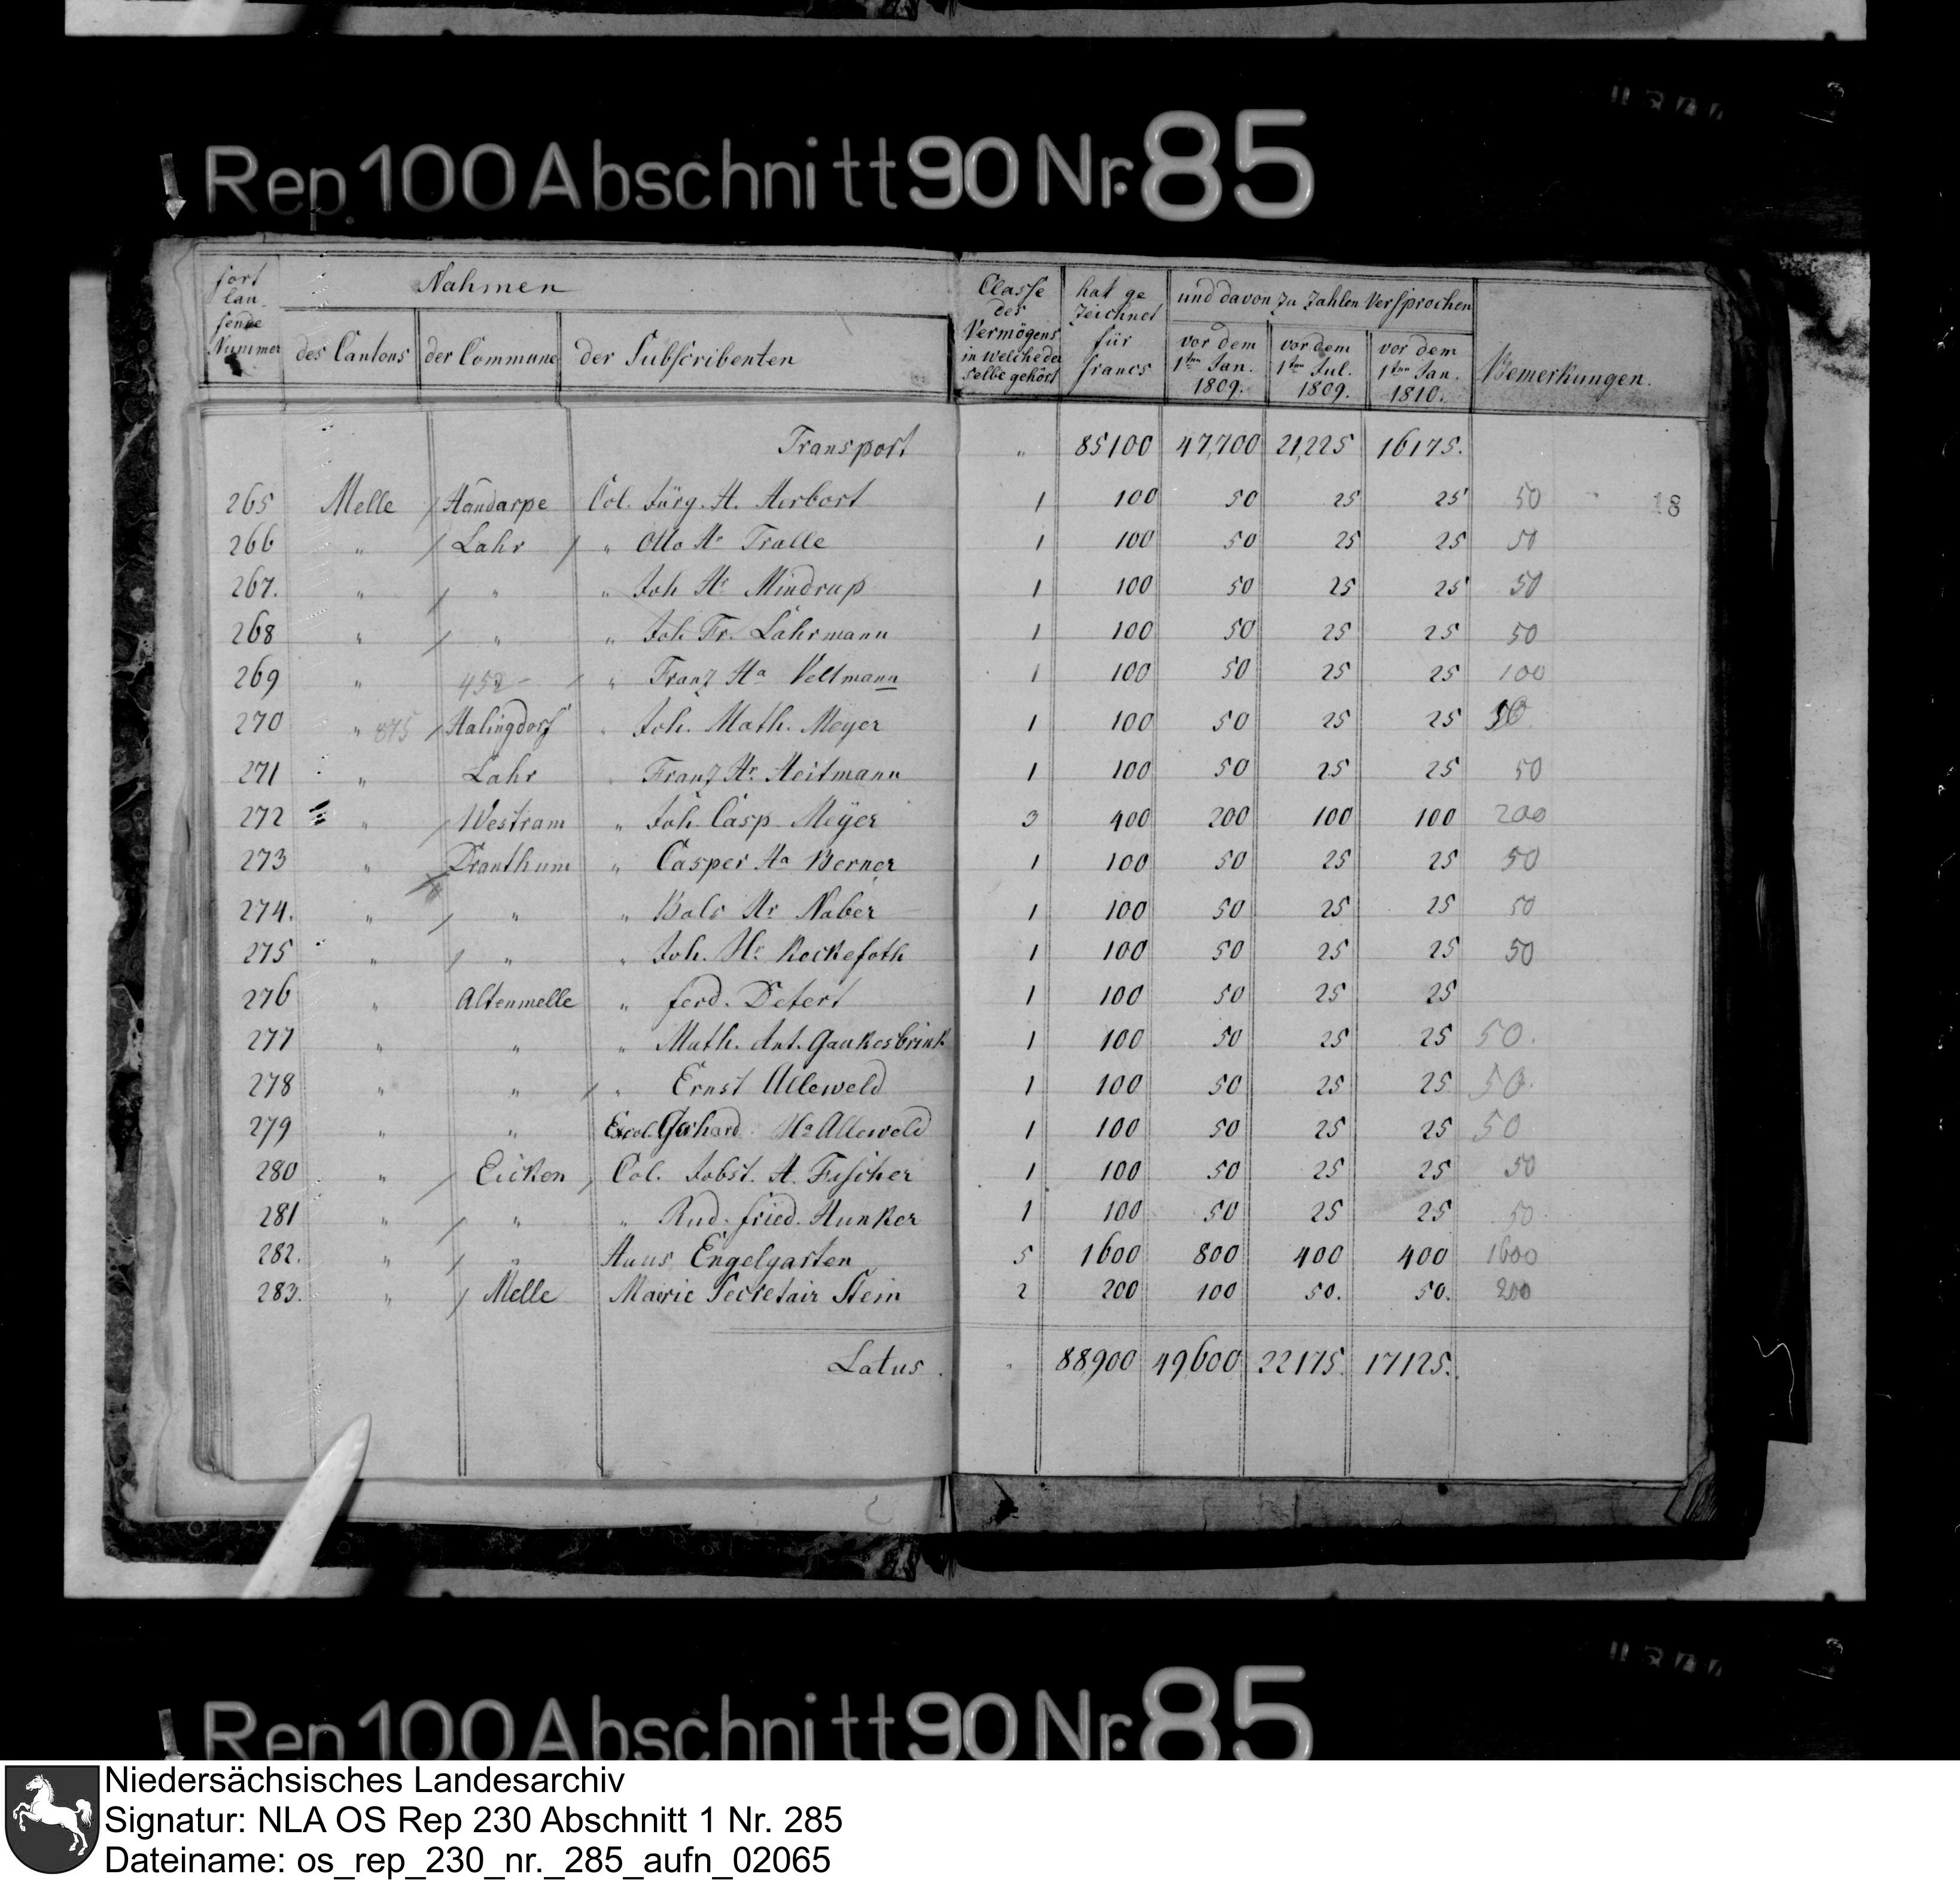 Rep. 100 Abschnitt 90 Nr. 85
fort lau- fende Nummer
Nahmen
des Cantons
der Commune
der Subscribenten
Classe des Vermögens in welche der selbe gehört
hat ge zeichnet für francs
und davon zu zahlen versprochen
vor dem 1ten Jan. 1809.
vor dem 1ten Jul. 1809.
vor dem 1ten Jan. 1810.
Bemerkungen.
Transport " 85100 47,700 21,225 16175.
18
265 Melle / Handarpe Col. Jürg. H. Herbort 1 100 50 25 25 50
266 " / Lahr / " Otto Hr Tralle 1 100 50 25 25 50
267. " / " " Joh Hr Mindrup 1 100 50 25 25 50
268 " / " " Joh Fr. Lahrmann 1 100 50 25 25 50
269 " 452 - / " Franz Ha Veltmann 1 100 50 25 25 100
270 " 875 / Halingdorf " Joh. Math. Meyer 1 100 50 25 25 50
271 " Lahr " Franz Hr Heitmann 1 100 50 25 25 50
272 " / Westram " Joh. Casp. Meÿer 3 400 200 100 100 200
273 " Dranthum " Casper Ha Berner 1 100 50 25 25 50
274. " / " " Bals Hr Naber 1 100 50 25 25 50
275 " / " " Joh. Hr Kockefoth 1 100 50 25 25 50
276 " Altenmelle " ferd. Detert 1 100 50 25 25
277 " " " Math. Ant. Gaukesbrink 1 100 50 25 25 50.
278 " " / " Ernst Alleweld 1 100 50 25 25 50.
279 " " Excol. Gerhard Ha Alleweld 1 100 50 25 25 50
280 " / Eicken / Col. Jobst. H. Fischer 1 100 50 25 25 50
281 " / " " Rud. fried. Hunker 1 100 50 25 25 50
282. " / " Haus Engelgarten 5 1600 800 400 400 1600
283. " / Melle Mairie Secretair Stein 2 200 100 50. 50. 200
Latus. " 88,900 49,600 22175. 17125.
Rep 100 Abschnitt 90 Nr. 85
Niedersächsisches Landesarchiv
Signatur: NLA OS Rep 230 Abschnitt 1 Nr. 285
Dateiname: os_rep_230_nr._285_aufn_02065